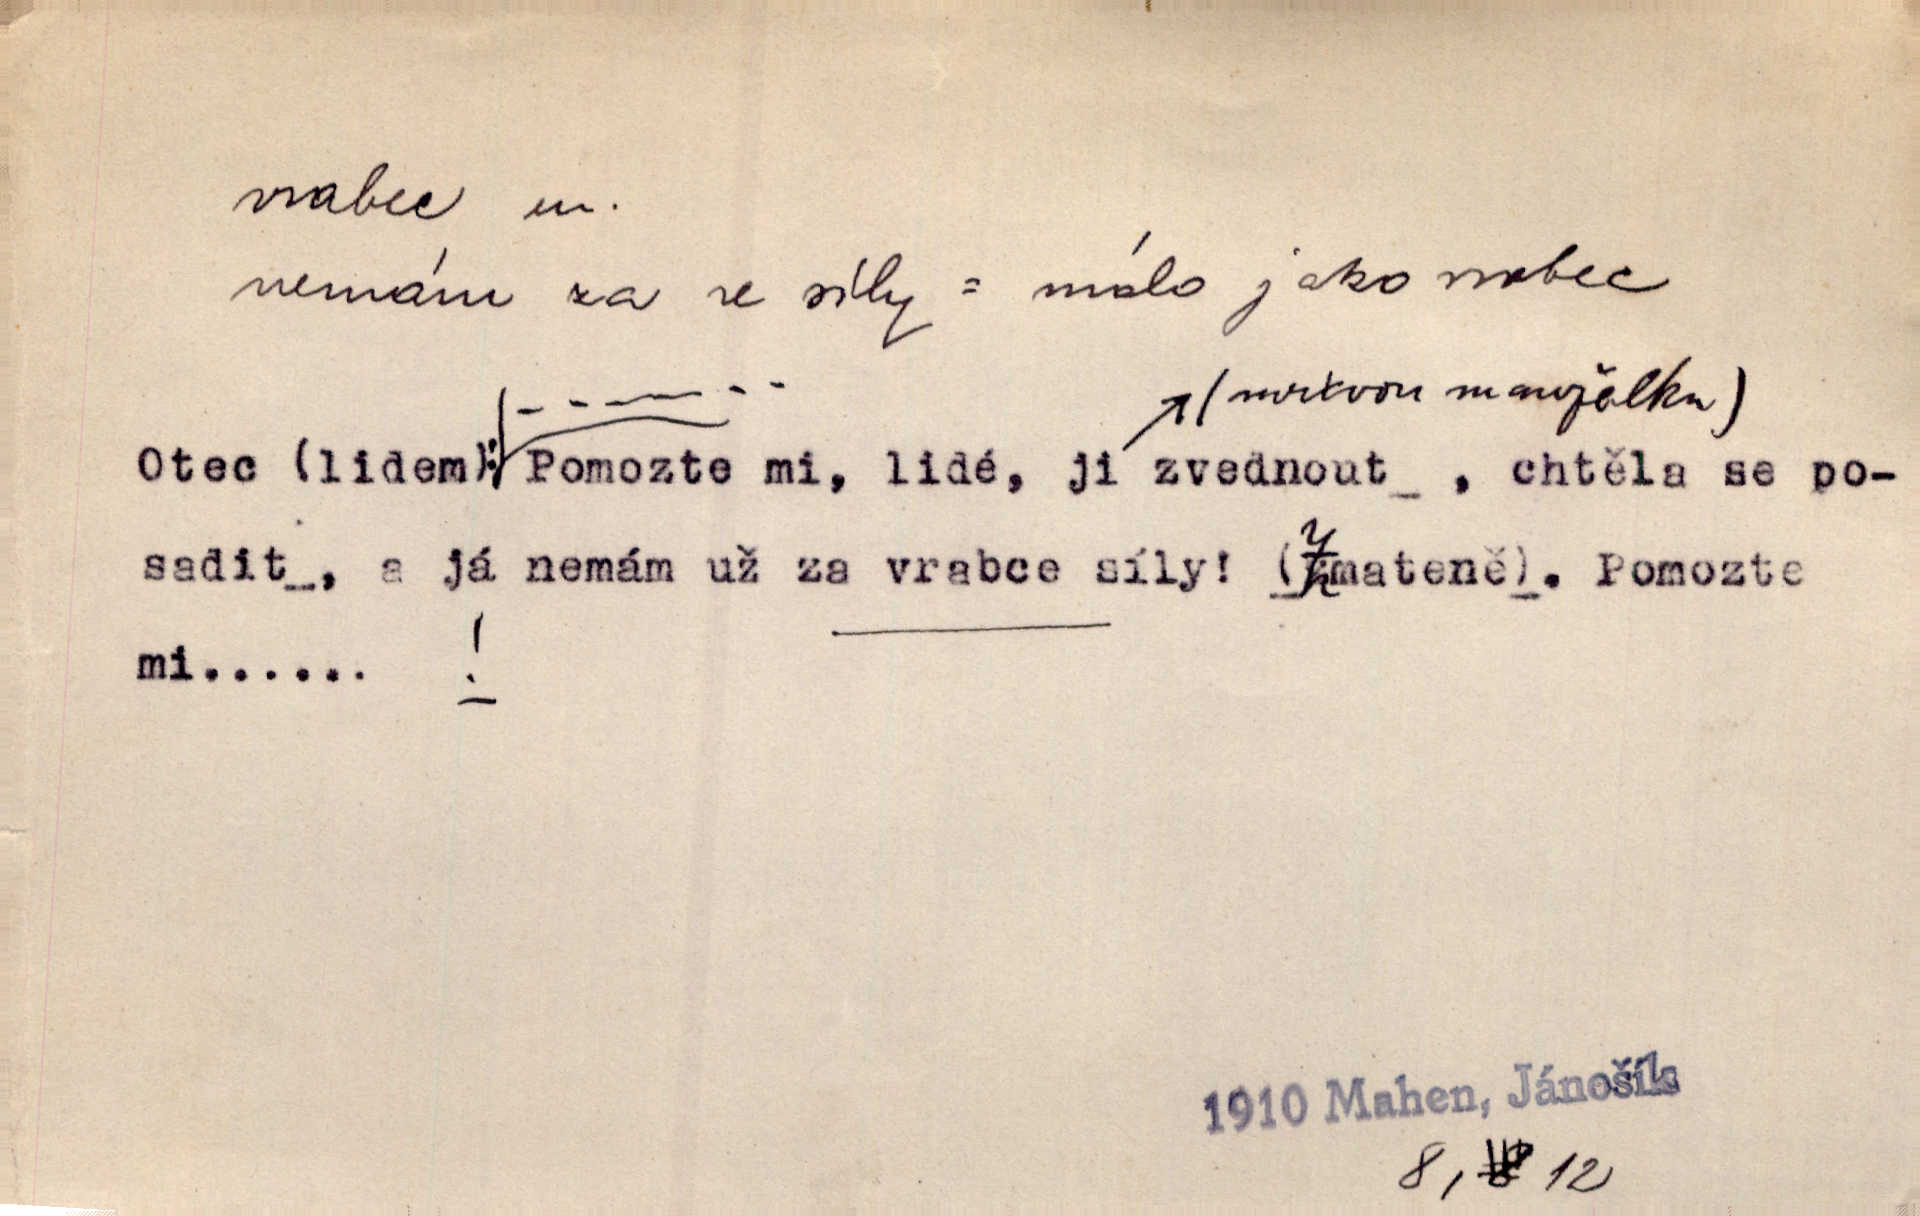 vrabec m.
nemám za ve síly = málo jako vrabec
(mrtvou manželku)
Otec (lidem): Pomozte mi, lidé, ji zvednout_ , chtěla se po-
sadit_, a já nemám už za vrabce síly! (Zmateně). Pomozte
mi...... !
1910 Mahen, Jánošík
8, 12